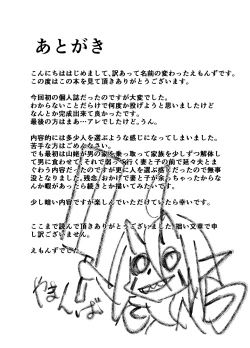 あとがき
こんにちははじめまして、訳あって名前の変わったえもんずです。
この度はこの本を見て頂きありがとうございます。
今回初の個人誌だったのですが大変でした。
わからないことだらけで何度か投げようと思いましたけど
なんとか完成出来て良かったです。
最後の方はまあ…アレでしたけど。うん。
内容的には多少人を選ぶような感じになってしまいました。
苦手な方はごめんなさい。
でも最初は山姥が男の家を乗っ取って家族を少しずつ解体し
て男に食わせて、それで弱って行く妻と子の前で延々とま
ぐわう内容だったのですが更に人を選ぶ感じだったので無事
没となりました。残念。おかげで妻と子が余っちゃったからな
んか暇があったら続きとか描いてみたいです。
少し暗い内容ですが楽しんでいただけていたら幸いです。
ここまで読んで頂きありがとうございました。拙い文章で申
し訳ございません。
えもんずでした。
やまんば